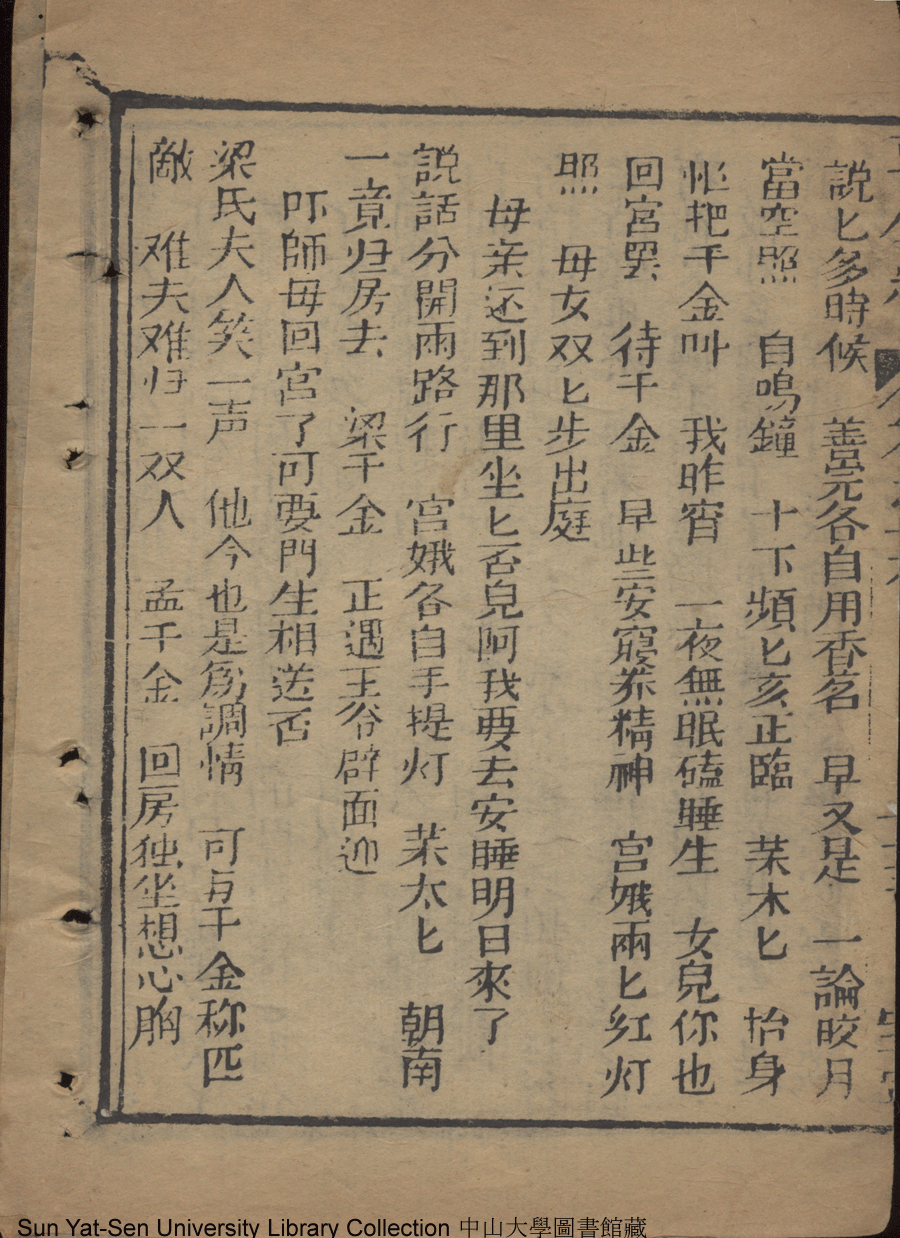 説匕多時候　善完各自用香茗　早又是　一論皎月
當空照　自鳴鐘　十下頻匕亥正臨　苿木匕　抬身
忙把千金叫　我昨宵　一夜無眠磕睡生　女兒你也
回宮罢　待千金　早些安寢养精神　宮娥兩匕紅灯
照　母女双匕步出庭
母亲还到那里坐匕否兒阿我要去安睡明日來了
説話分開兩路行　宮娥各自手提灯　苿太匕　朝南
一竟归房去　梁千金　正遇王爷辟面迎
吓師母回宮了可要門生相送否
梁氏夫人笑一声　他今也是爲調情　可有千金称匹
敵　难夫难归一双人　孟千金　回房独坐想心胸
Sun Yat-Sen University Library Collection 中山大學圖書館藏